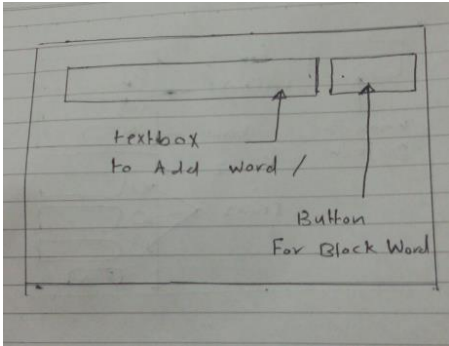 textbox
to Add word /
Button
For Block Word